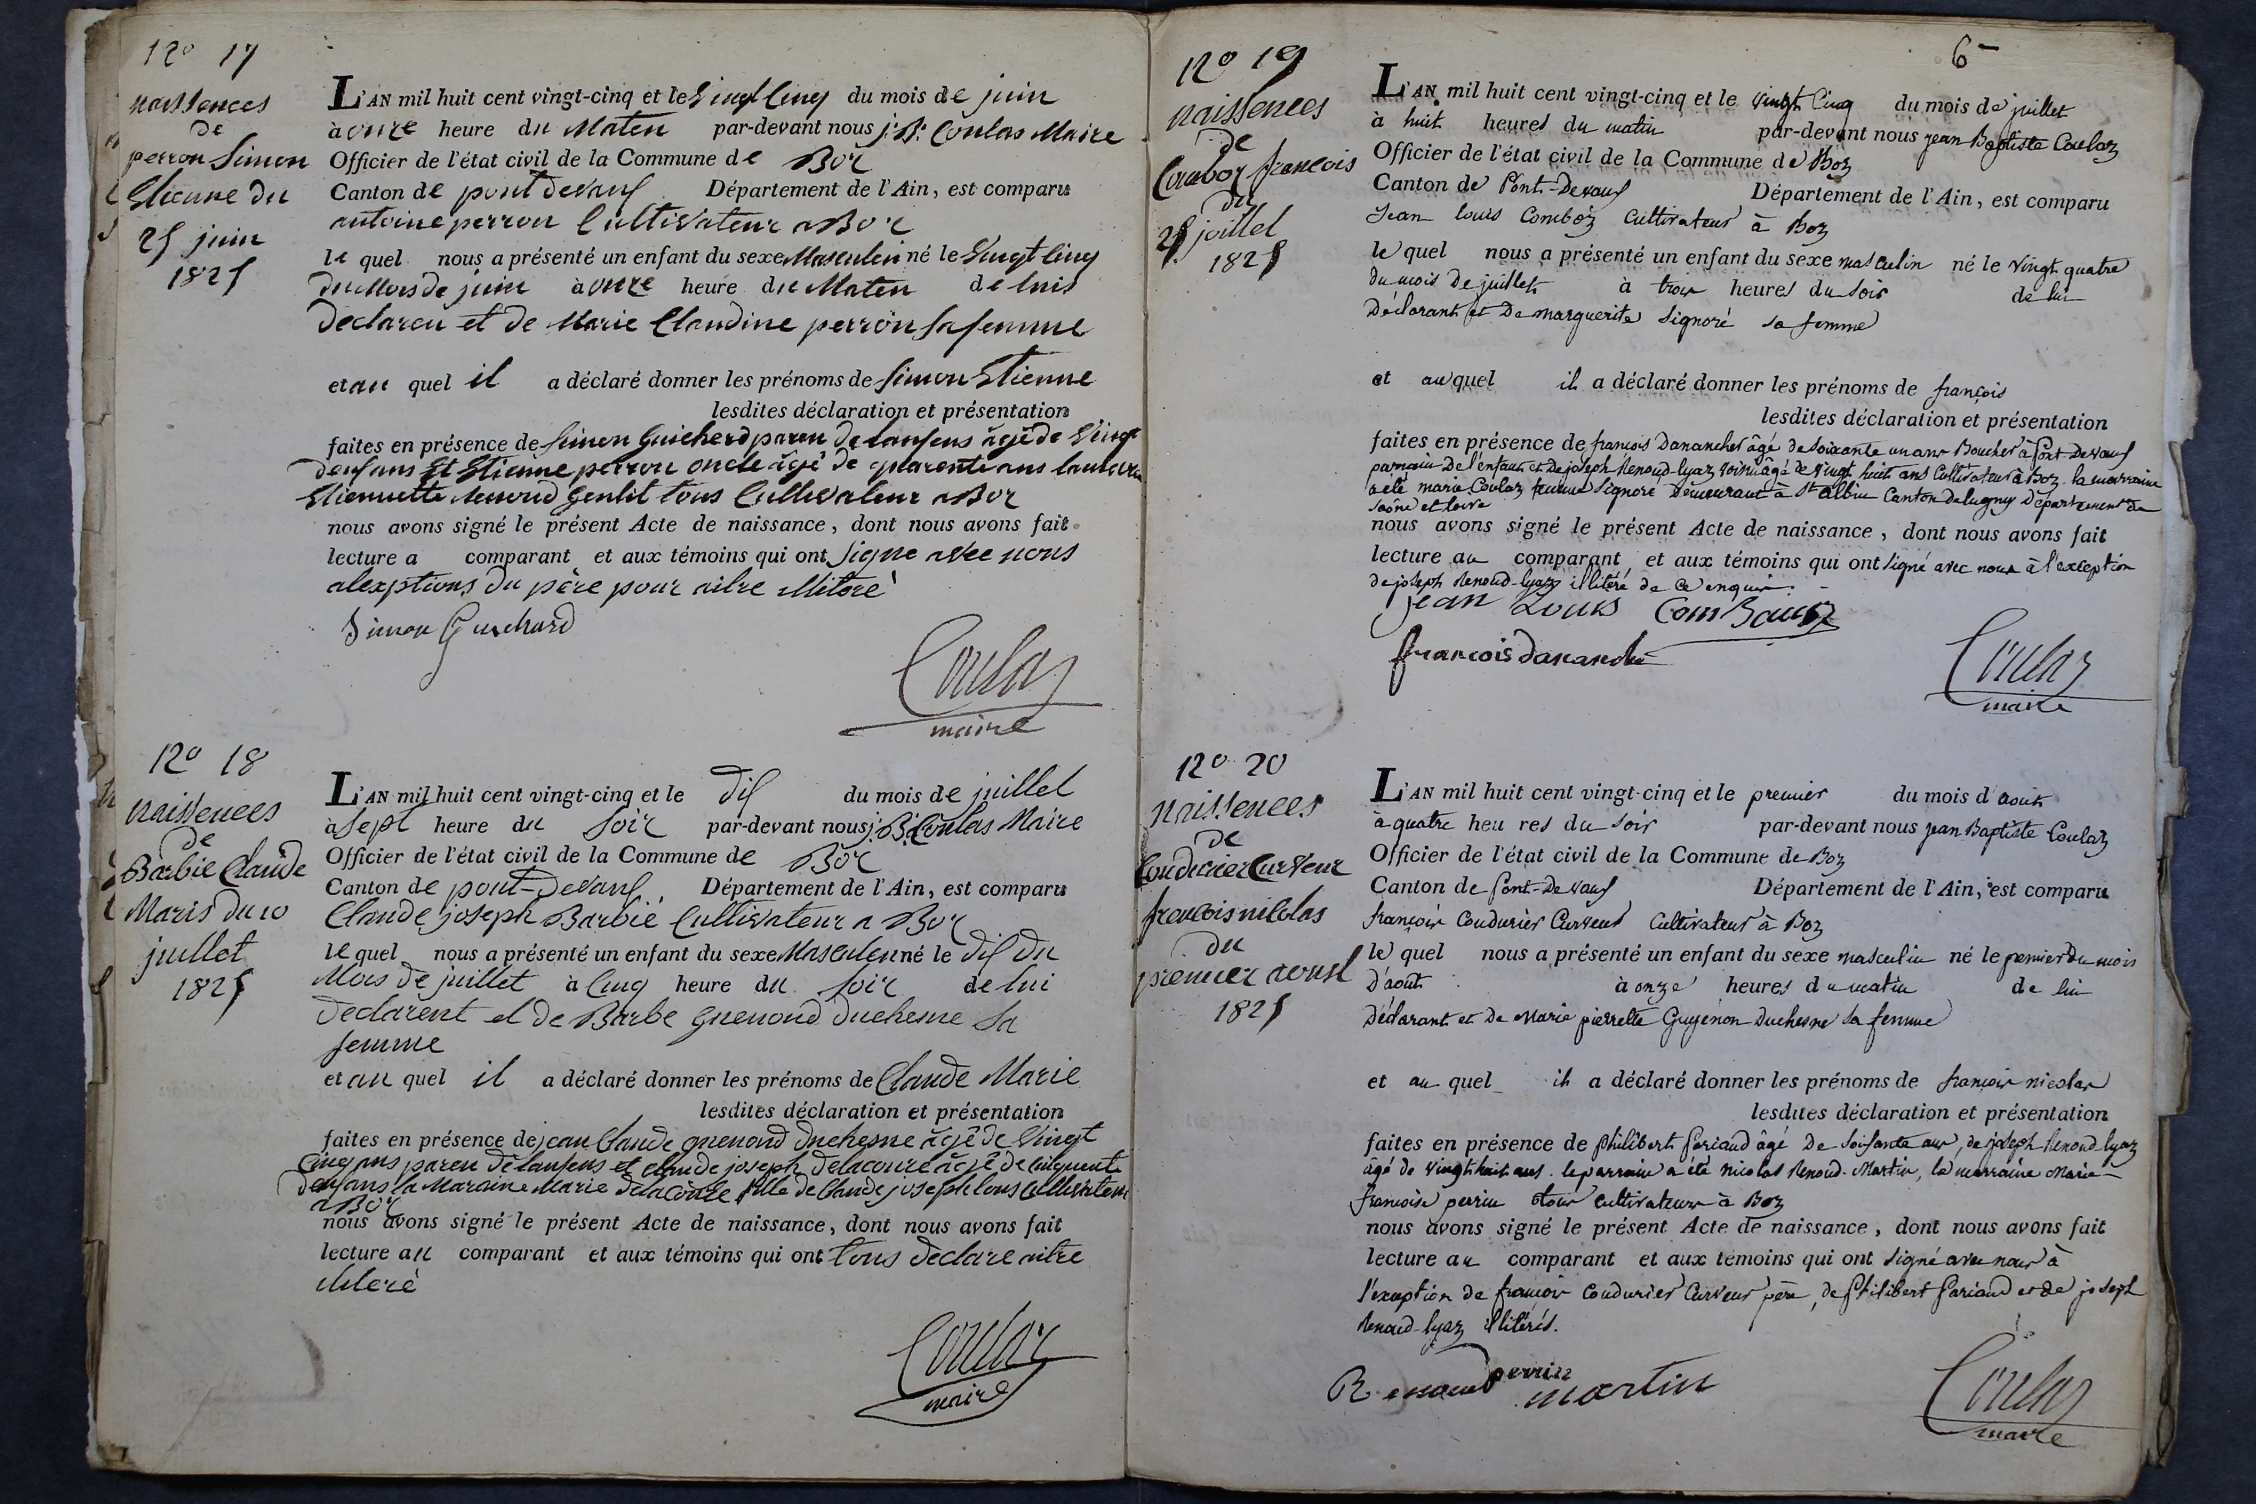 N° 17
naissences
de
perron Simon
Etienne du
25 juin
1825
L'AN mil huit cent vingt-cinq et le Vingt Cinq du mois de juin
à onze heure du Maten par-devant nous j. B. Coulas Maire
Officier de l'état civil de la Commune de Boz
Canton de pont devaux Département de l'Ain, est comparu
antoine perron Cultivateur a Boz
le quel nous a présenté un enfant du sexe Masculin né le Vingt Cinq
du Mois de juin à onze heure du Maten de luis
declareu et de Marie Claudine perron sa femme
et au quel il a déclaré donner les prénoms de Simon Etienne
lesdites déclaration et présentation
faites en présence de Simon Guicherd paren de lanfens âgé de Vingt
deux ans Et Etienne perron oncle âgé de quarente ans
Etiennette Renoud Gentit tous Cultivateur a Boz
nous avons signé le présent Acte de naissance, dont nous avons fait
lecture a comparant et aux témoins qui ont signe avec nous
alexptions du père pour aitre illitoré
Simon Guichard
Coulaz
maire
N° 18
naissences
de
Barbié Claude
Maris du 10
juillet
1825
L'AN mil huit cent vingt-cinq et le dix du mois de juillet
à sept heure du soir par-devant nous j. B. Coulas Maire
Officier de l'état civil de la Commune de Boz
Canton de pont-devaux Département de l'Ain, est comparu
Claude joseph Barbié Cultivateur a Boz
le quel nous a présenté un enfant du sexe Masculen né le dix du
Mois de juillet à Cinq heure du soir de lui
declarent et de Barbe Guenoud duchesne sa
femme
et au quel il a déclaré donner les prénoms de Claude Marie
lesdites déclaration et présentation
faites en présence de jean Claude guenoud duchesne âgé de Vingt
Cinq ans paren de lanfens et claude joseph delacoure âgé de Cinquente
deux ans la Maraine Marie delacouze fille de Claude joseph tous Cultivateur
a Boz
nous avons signé le présent Acte de naissance, dont nous avons fait
lecture au comparant et aux témoins qui ont tous declare aitre
illiteré
Coulaz
maire
6
N° 19
naissences
de
Comboz francois
du
25 juillet
1825
L'AN mil huit cent vingt-cinq et le vingt Cinq du mois de juillet
à huit heures du matin par-devant nous jean Baptiste Coulaz
Officier de l'état civil de la Commune de Boz
Canton de Pont-Devaux Département de l'Ain, est comparu
Jean louis Comboz cultivateur à Boz
le quel nous a présenté un enfant du sexe masculin né le vingt quatre
du mois de juillet à trois heures du soir de lui
Déclarant et De marguerite Signoré sa femme
et au quel il a déclaré donner les prénoms de françois
lesdites déclaration et présentation
faites en présence de françois Danancher âgé de soixante un ans Boucher à Pont Devaux
parrain De l'enfant et de joseph Renoud-lyaz voisin âgé de vingt huit ans Cultivateur à Boz. la marraine
a été marie Coulaz femme Signoré Demeurant à St albin Canton De lugny Département de
saone et loire
nous avons signé le présent Acte de naissance, dont nous avons fait
lecture au comparant et aux témoins qui ont signé avec nous à l'exception
de joseph Renoud-lyaz illitéré de ce enquis.
jean Louis ComBauz
francois danancher
Coulaz
maire
N° 20
naissences
de
Coudurier Curveur
francois nicolas
du
premier aoust
1825
L'AN mil huit cent vingt-cinq et le premier du mois d'aout
à quatre heures du soir par-devant nous jean Baptiste Coulaz
Officier de l'état civil de la Commune de Boz
Canton de Pont-Devaux Département de l'Ain, est comparu
françois Coudurier Curveur Cultivateur à Boz
le quel nous a présenté un enfant du sexe masculin né le premier du mois
D'aout à onze heures du matin de lui
Déclarant et De Marie pierrette Guyénon Duchesne sa femme
et au quel il a déclaré donner les prénoms de françois nicolas
lesdites déclaration et présentation
faites en présence de Philibert Pariaud âgé De soixante ans, de joseph Renoud-lyaz
âgé de vingt huit ans. le parrain a été nicolas Renoud-Martin, la marraine Marie-
françoise perrin tous cultivateurs à Boz
nous avons signé le présent Acte de naissance, dont nous avons fait
lecture au comparant et aux témoins qui ont signé avec nous à
l'exception de françois Coudurier Curveur père, de Philibert Pariaud et de joseph
Renoud-lyaz illitérés.
Renoud perrin
martin
Coulaz
maire